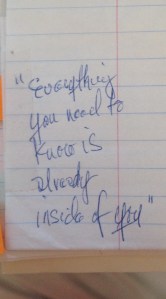 "Everything
you need to
know is
already
inside of you"